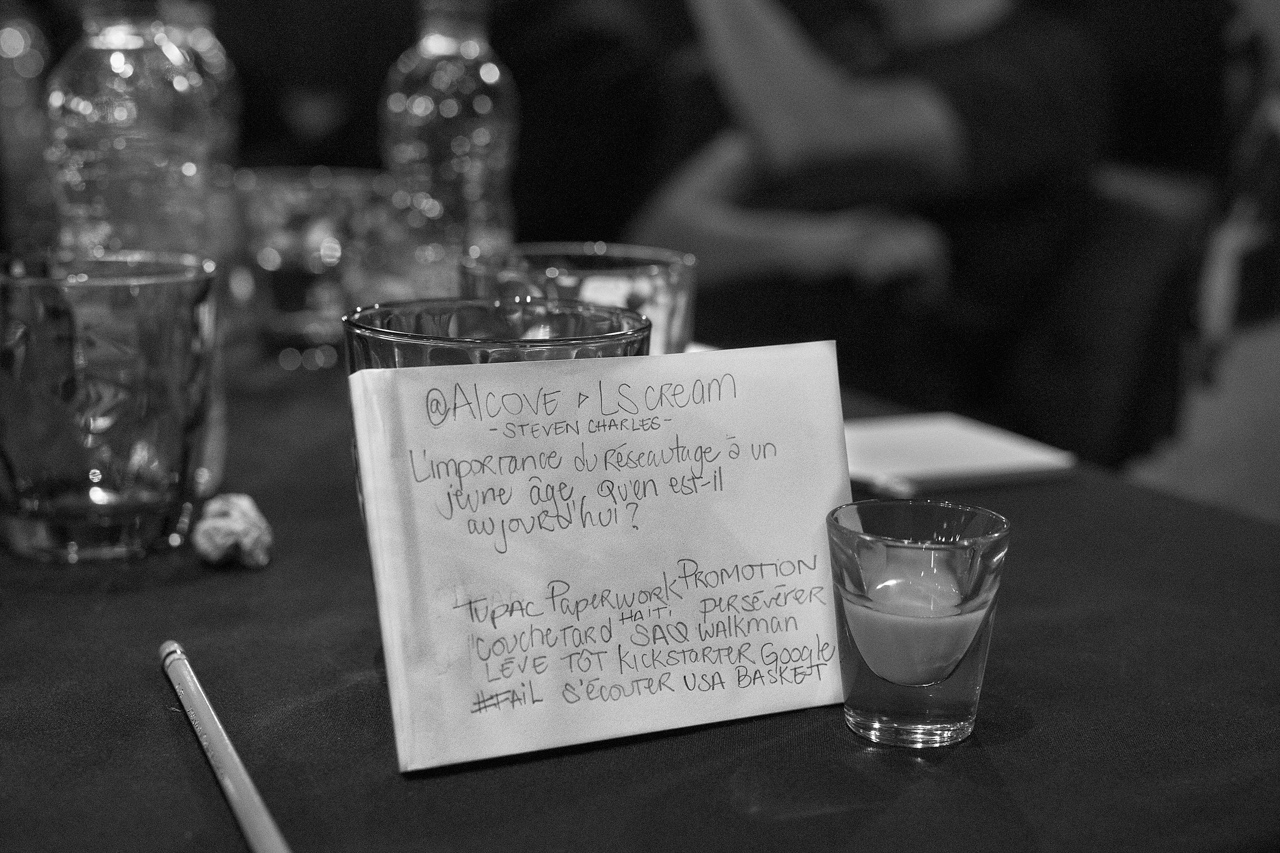 @Alcove ▹ LS cream
- STEVEN CHARLES -
L'imporrance du Réseautage à un
jeune âge, Qu'en est-il
aujourd'hui ?
Tupac Paperwork Promotion
couchetard Haiti persévérer
SAQ walkman
Lève tôt kickstarter Google
#FAIL s'écouter USA Basket